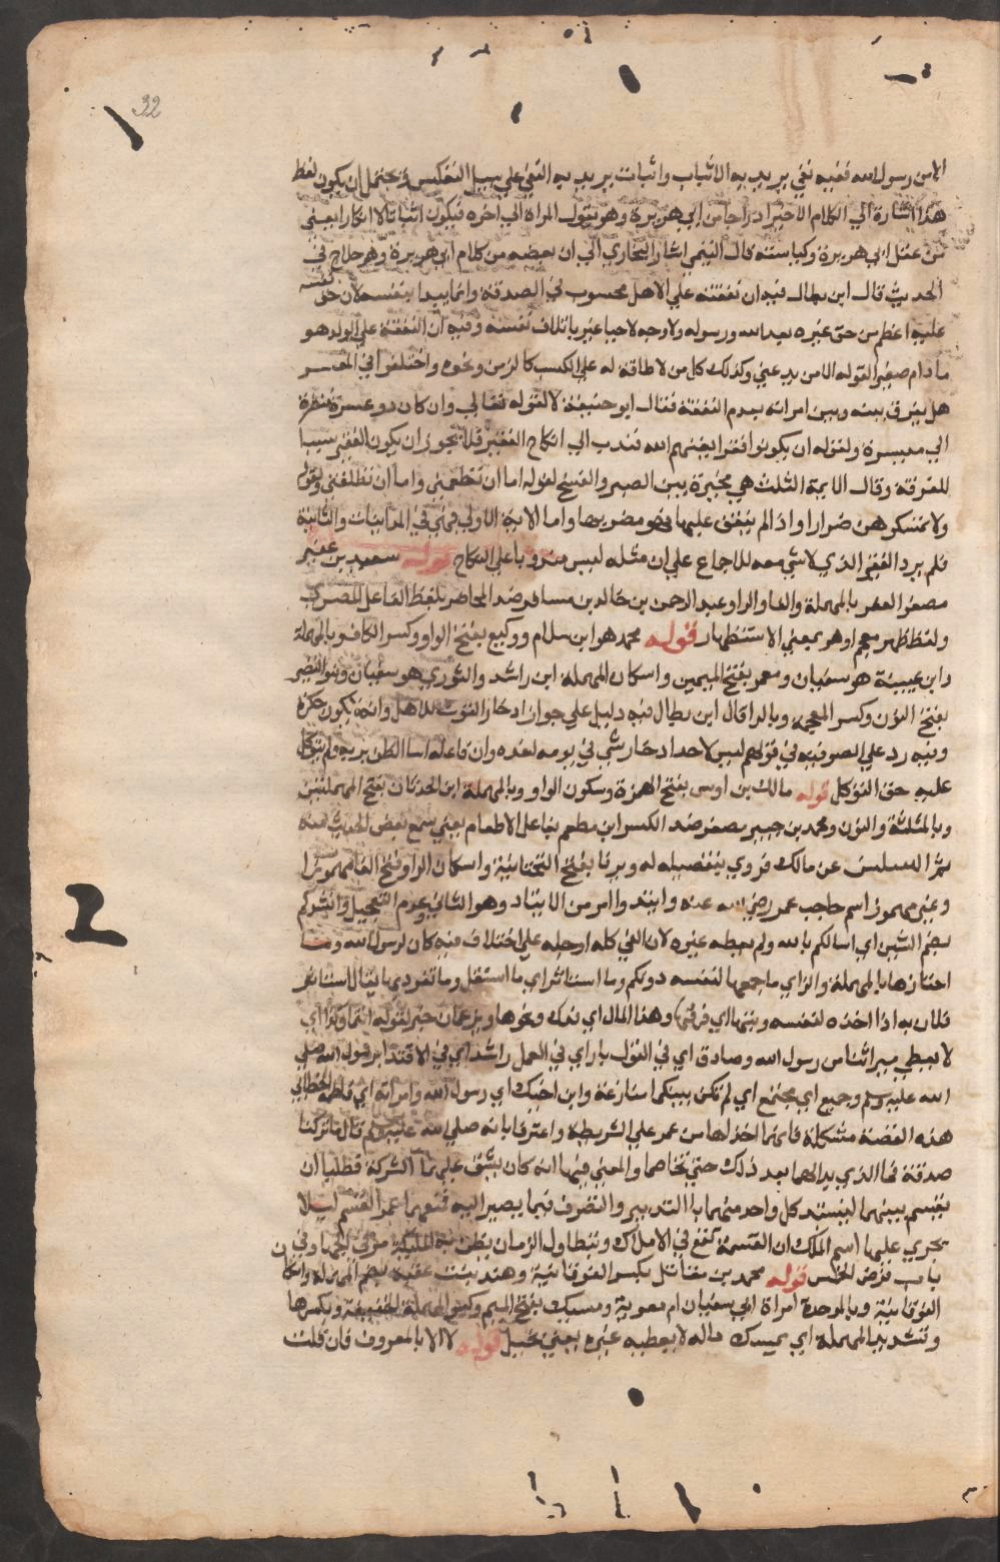 32
الا من رسول الله ففيه نفي يريد به الاثبات واثبات يريد به النفي علي سبيل التعكيس ويحتمل ان يكون لفظ
هذا اشارة الي الكلام الاخير ادراجا من ابي هريرة وهو يقول المراة الي اخره فيكون اثباتا لا انكارا يعني
من عقل ابي هريرة وكياسته قال التيمي اشار البخاري الي ان بعضه من كلام ابي هريرة وهو مدرج في
الحديث قال ابن بطال فيه ان نفقته علي الاهل محسوب في الصدقة وانما يبدا بنفسه لان حق نفسه
عليه اعظم من حق غيره بعد الله ورسوله ولا وجه لاحيا غيره باتلاف نفسه وفيه ان النفقة علي الولد هو
ما دام صغيرا لقوله الا من يدعني وكذلك كل من لا طاقة له علي الكسب كالزمن ونحوه واختلفوا في المعسر
هل يفرق بينه وبين امراته بعدم النفقة فقال ابو حنيفة لا لقوله تعالي وان كان ذو عسرة فنظرة
الي ميسرة ولقوله ان يكونوا فقرا يغنهم الله فندب الي انكاح الفقير فلا يجوز ان يكون الفقر سببا
للفرقة وقال الايمة الثلث هي مخيرة بين الصبر والفسخ لقوله اما ان تطعمني واما ان تطلقني ولقوله
ولا تمسكوهن ضرارا واذا لم ينفق عليها فهو مضر بها واما الاية الاولي فهي في المداينات والثانية
فلم يرد الفقير الذي لا شي معه للاجماع علي ان مثله ليس مندوبا علي النكاح قوله سعيد بن عفير
مصغر العفر بالمهملة والفا والرا وعبد الرحمن بن خالد بن مسافر ضد الحاضر بلفظ الفاعل
ولفظ ظهر مقحم او هو بمعني الاستظهار قوله محمد هو ابن سلام ووكيع بفتح الواو وكسر الكاف وبالمهملة
وابن عيينة هو سفيان ومعمر بفتح الميمين واسكان المهملة ابن راشد والثوري هو سفيان وبنو النضير
بفتح النون وكسر المعجمة وبالرا قال ابن بطال فيه دليل علي جواز ادخار القوت للاهل وانه لا يكون حكرة
وفيه رد علي الصوفيه في قولهم ليس لاحد ادخار شي في يومه لغده وان فاعله اسا الظن بربه ولم يتوكل
عليه حق التوكل قوله مالك بن اوس بفتح الهمزة وسكون الواو وبالمهملة ابن الحدثان بفتح المهملتين
وبالمثلثة والنون ومحمد بن جبير مصغر ضد الكسر ابن مطعم بفاعل الاطعام يعني سمع بعض الحديث منه
عن مالك فروي بتفصيله له ويرفا بفتح التحتانية واسكان الرا وفتح الفا مهموزا
وغير مهموز اسم حاجب عمر رضي الله عنه وايتدوا امر من الايتاد وهو التاني وعدم التعجيل وانشدكم
بضم الشين اي اسالكم بالله ولم يعطه غيره لان الفي كله ارجله علي اختلاف فيه كان لرسول الله وما
احتازها بالمهملة والزاي ما جمعها لنفسه دونكم وما استاثر اي ما استقل وما تفرد بها يقال استاثر
فلان به اذا اخذه لنفسه وبثها اي فرقها وهذا المال اي فدك ونحوها وتزعمان خبر لقوله انتما وكذا اي
لا يعطي ميراثنا من رسول الله وصادق اي في القول بار اي في العمل راشد اي في الاقتدا برسول الله صلي
الله عليه وسلم وجميع اي مجتمع اي لم تكن بينكما منازعة وابن اخيك اي رسول الله وامراته اي فاطمة الخطابي
هذه القصة مشكلة فانهما اخذاها من عمر علي الشريطة واعترفا بانه صلي الله عليه وسلم قال ما تركنا
صدقة فما الذي بدا لهما بعد ذلك حتي تخاصما والمعني فيها انه كان يشق عليهما الشركة فطلبا ان
يقسم بينهما ليستبد كل واحد منهما بالتدبير والتصرف فيما يصير اليه فمنعهما عمر القسم ليلا
يجري عليها اسم الملك ان القسمة تقع في الاملاك وتتطاول الزمان يظن به الملكية
باب قوله محمد بن مقاتل بكسر الفوقانية وهند بنت عتبة بضم المهملة واسكان
الفوقانية وبالموحدة امراة ابي سفيان ام معوية ومسيك بفتح الميم وكسر المهملة الخفيفة وبكسرها
وتشديد المهملة اي يمسك ماله لا يعطيه غيره يعني بخيل قوله لا الا بالمعروف فان قلت